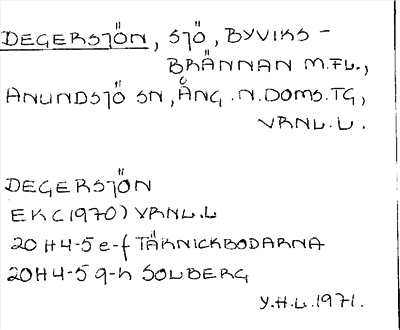 DEGERSJÖN, SJÖ, BYVIKS-
BRÄNNAN M.FL.,
ANUNDSJÖ SN, ÅNG.N.DOMS.TG,
VRNL.L.
DEGERSJÖN
EK (1970) VRNL.L
20H 4-5 e-f TÄRNICKBODARNA
20H 4-5 g-h SOLBERG
Y.H.L. 1971.